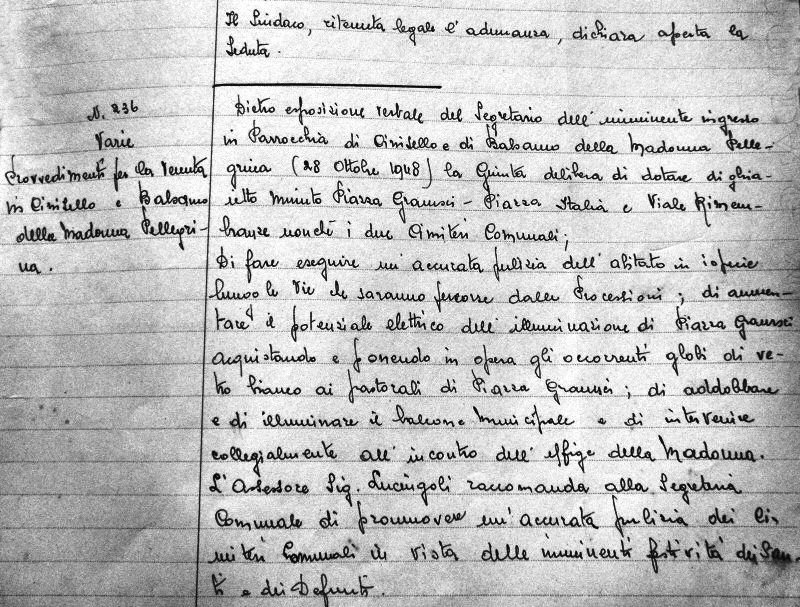 Il Sindaco, ritenuta legale l'adunanza, dichiara aperta la
Seduta.
N. 236
Varie
Provvedimenti per la venuta
in Cinisello e Balsamo
della Madonna Pellegri-
na.
Dietro esposizione verbale del Segretario dell'imminente ingresso
in Parrocchia di Cinisello e di Balsamo della Madonna Pelle-
grina (28 Ottobre 1948) la Giunta delibera di dotare di ghia-
ietto minuto Piazza Gramsci - Piazza Italia e Viale Rimem-
branze nonchè i due Cimiteri Comunali;
Di fare eseguire un'accurata pulizia dell'abitato in ispecie
lungo le vie che saranno percorse dalle Processioni; di aumen-
tare il potenziale elettrico dell'illuminazione di Piazza Gramsci
acquistando e ponendo in opera gli occorrenti globi di ve-
tro bianco ai pastorali di Piazza Gramsci; di addobbare
e di illuminare il balcone Municipale e di intervenire
collegialmente all'incontro dell'effige della Madonna.
L'Assessore Sig. raccomanda alla Segreteria
Comunale di promuovere un'accurata pulizia dei Ci-
miteri Comunali in vista delle imminenti festività dei San-
ti e dei Defunti.